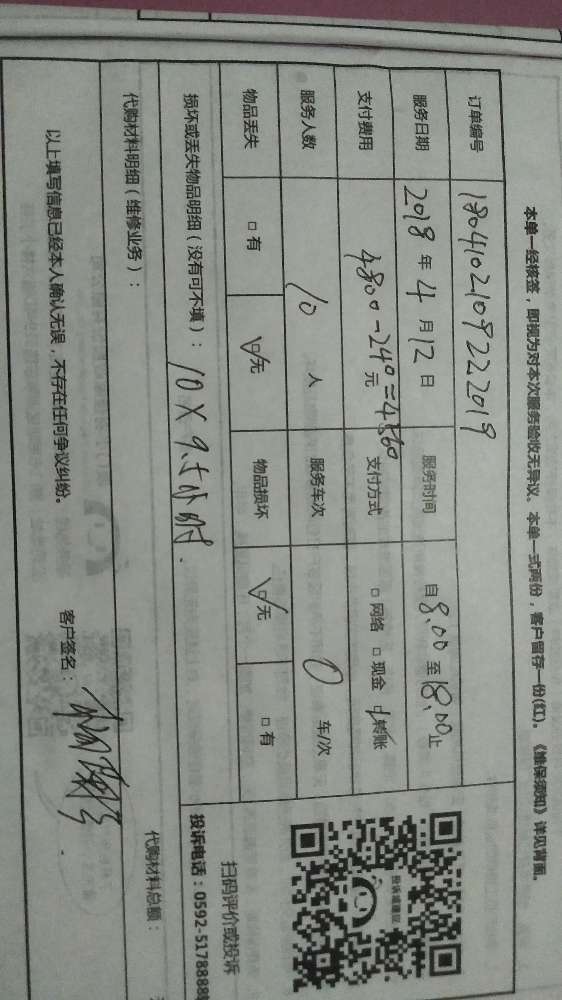 本单一经核签，即视为对本次服务验收无异议。本单一式两份，客户留存一份(红)。《维保须知》详见背面。
订单编号 180410210922019
服务日期 2018 年 4 月 12 日 服务时间 自 8.00 至 18.00 止
支付费用 4800-240=4560 元 支付方式 □ 网络 □ 现金 ☑ 转账
服务人数 10 人 服务车次 0 车/次
物品丢失 □ 有 ☑ 无 物品损坏 ☑ 无 □ 有
损坏或丢失物品明细（没有可不填）： 10 X 9.5小时.
投诉或建议
扫码评价或投诉
投诉电话：0592-5178888
代购材料明细（维修业务）： 代购材料总额：
以上填写信息已经本人确认无误，不存在任何争议纠纷。 客户签名：